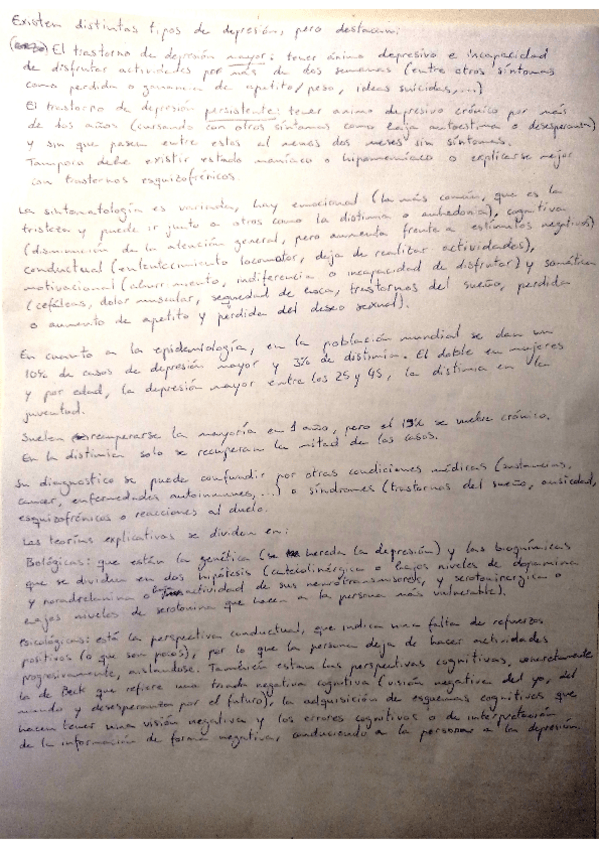 Existen distintos tipos de depresión, pero destacan:
El trastorno de depresión mayor: tener ánimo depresivo e incapacidad
de disfrutar actividades por más de dos semanas (entre otros síntomas
como perdida o ganancia de apetito/peso, ideas suicidas,...)
El trastorno de depresión persistente: tener animo depresivo crónico por más
de dos años (cursando con otros síntomas como baja autoestima o desesperanza)
y sin que pasen entre estos al menos dos meses sin síntomas.
Tampoco debe existir estado maníaco o hipomaníaco o explicarse mejor
con trastornos esquizofrénicos.
La sintomatología es variada, hay emocional (la más común, que es la
tristeza y puede ir junto a otros como la distimia o anhedonia), cognitiva
(disminución de la atención general, pero aumenta frente a estímulos negativos)
conductual (enlentecimiento locomotor, deja de realizar actividades),
motivacional (aburrimiento, indiferencia o incapacidad de disfrutar) y somática
(cefáleas, dolor muscular, sequedad de boca, trastornos del sueño, perdida
o aumento de apetito y perdida del deseo sexual).
En cuanto a la epidemiología, en la población mundial se dan un
10% de casos de depresión mayor y 3% de distimia. El doble en mujeres
y por edad, la depresión mayor entre los 25 y 45, la distimia en la
juventud.
Suelen recuperarse la mayoría en 1 año, pero el 19% se vuelve crónico.
En la distimia solo se recuperan la mitad de los casos.
Su diagnostico se puede confundir por otras condiciones médicas (sustancias,
cancer, enfermedades autoinmunes, ...) o síndromes (trastornos del sueño, ansiedad,
esquizofrénicos o reacciones al duelo.
Las teorías explicativas se dividen en:
Bológicas: que están la genética (se hereda la depresión) y las bioquímicas
que se dividen en dos hipótesis (catecolinérgica o bajos niveles de dopamina
y noradrelamina o actividad de sus neurotransmisores, y serotoinérgica o
bajos niveles de serotonina que hacen a la persona más vulnerable).
Psicológicas: está la perspectiva conductual, que indica una falta de refuerzos
positivos (o que son pocos), por lo que la persona deja de hacer actividades
progresivamente, aislandose. También estan las perspectivas cognitivas, concretamente
la de Beck que refiere una triada negativa cognitiva (visión negativa del yo, del
mundo y desesperanza por el futuro), la adquisición de esquemas cognitivos que
hacen tener una visión negativa y los errores cognitivos o de interpretación
de la información de forma negativa, conduciendo a la persona a la depresión.